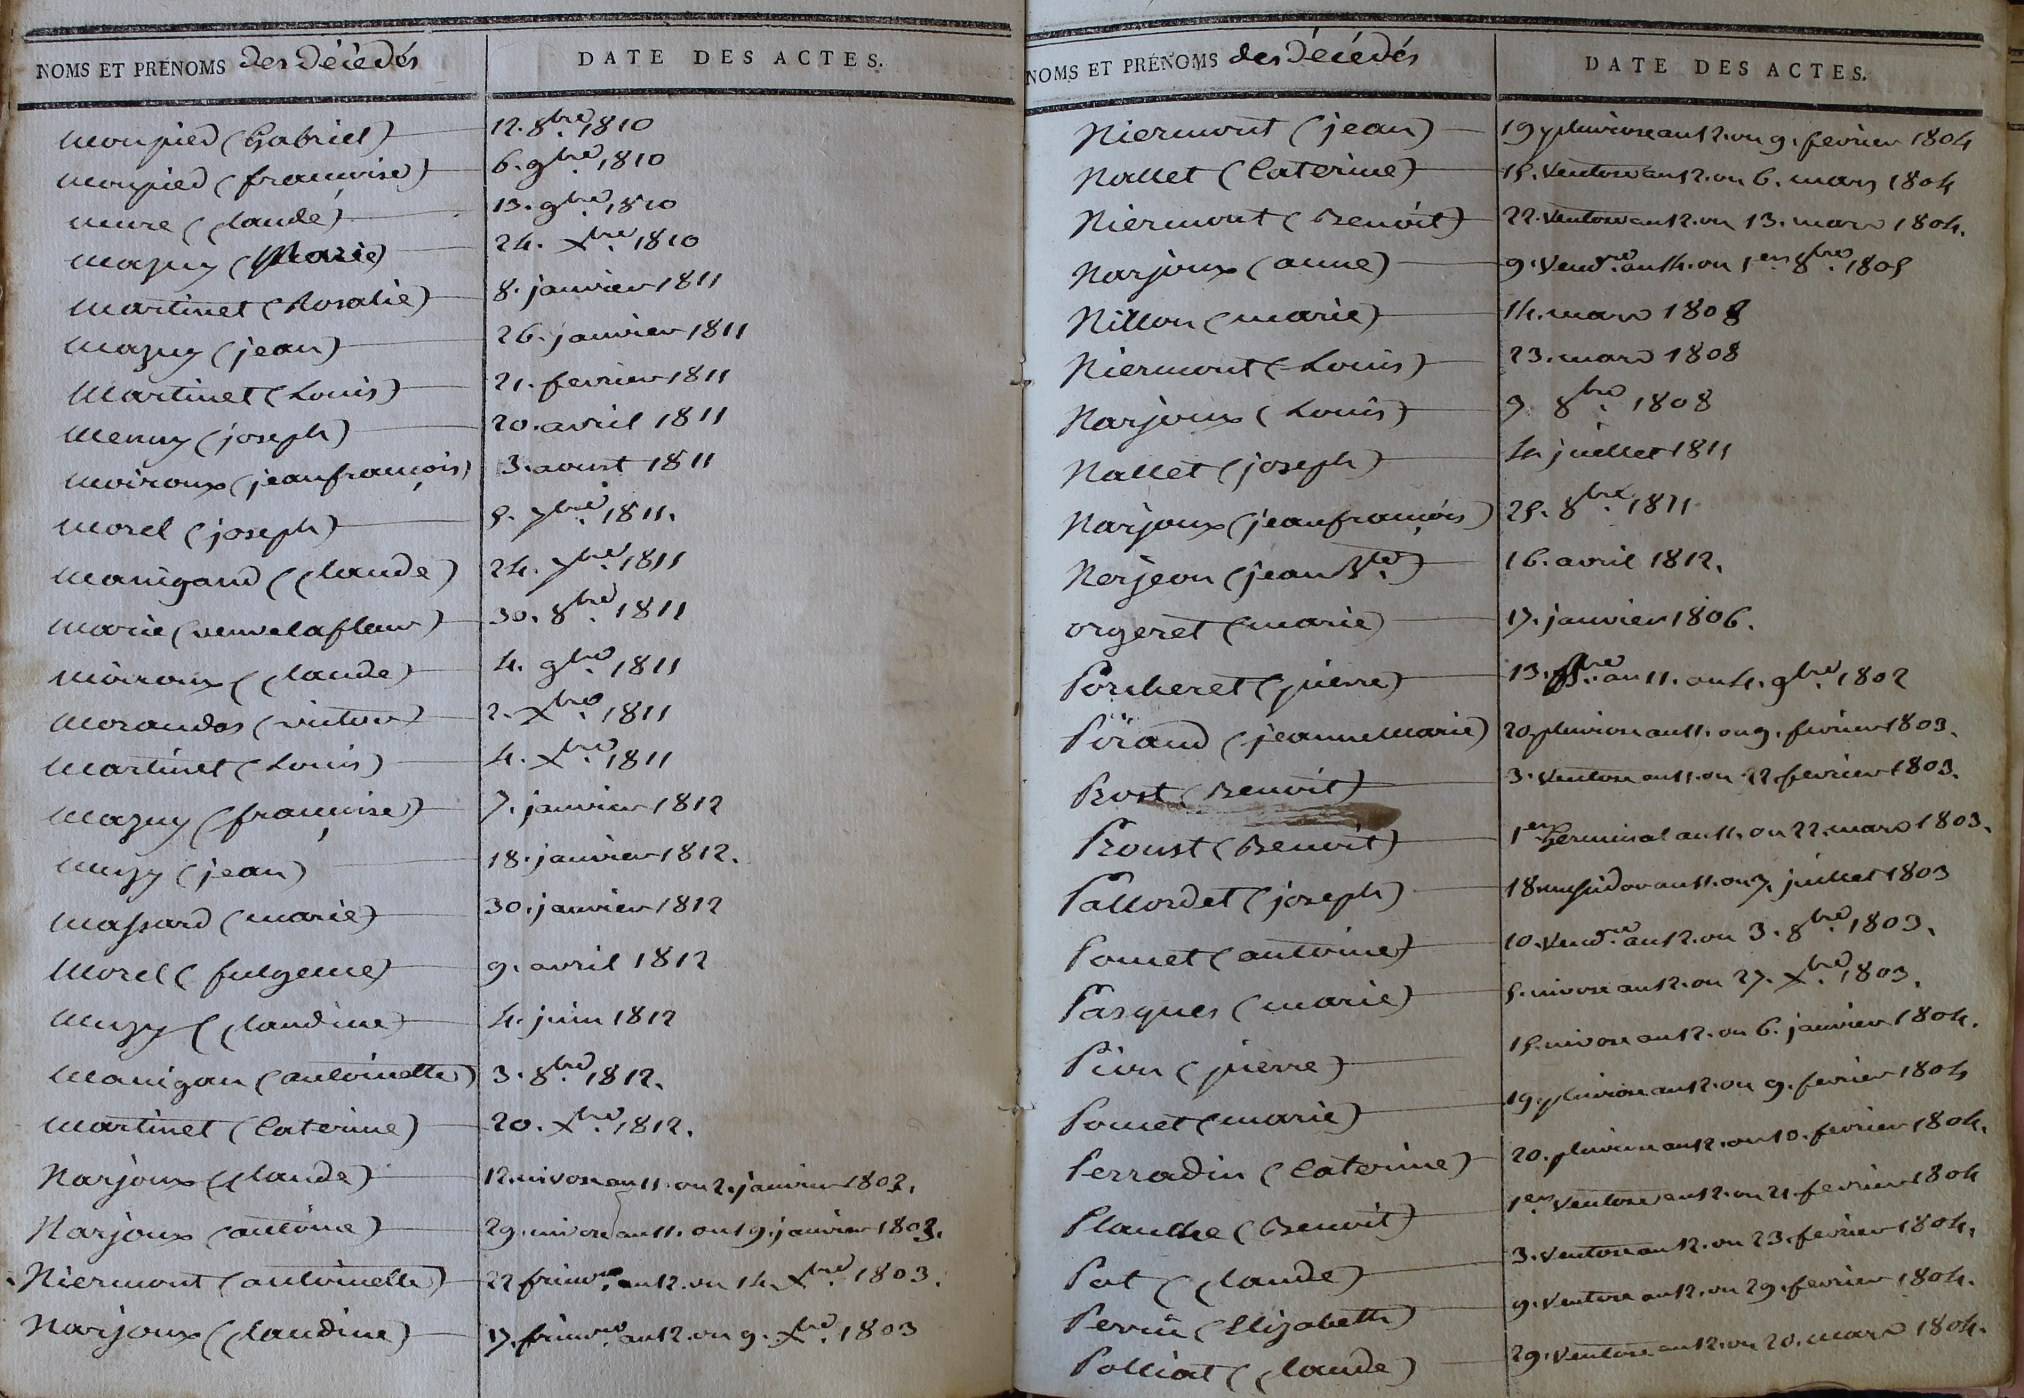 NOMS ET PRÉNOMS des Décédés DATE DES ACTES.
Monpied (Gabriel) 12. 8bre 1810
Monpied (françoise) 6. 9bre 1810
Mure (Claude) 13. 9bre 1810
Mazuy (Marie) 24. Xbre 1810
Martinet (Rosalie) 8. janvier 1811
Mazuy (jean) 26. janvier 1811
Martinet (Louis) 21. fevrier 1811
Menuy (joseph) 20. avril 1811
Moiroux (jean françois) 3. aoust 1811
Morel (joseph) 5. 7bre 1811.
Manigand (Claude) 24. 7bre 1811
Marie (veuve lafleur) 30. 8bre 1811
Moiroux (Claude) 4. 9bre 1811
Morandas (victor) 2. Xbre 1811
Martinet (Louis) 4. Xbre 1811
Mazuy (françoise) 7. janvier 1812
Muzy (jean) 18. janvier 1812.
Massard (marie) 30. janvier 1812
Morel (fulgence) 9. avril 1812
Muzy (Claudine) 4. juin 1812
Manigan (antoinette) 3. 8bre 1812.
Martinet (Caterine) 20. Xbre 1812.
Narjoux (Claude) 12. nivose an 11. ou 2. janvier 1803.
Narjoux (antoine) 29. nivose an 11. ou 19. janvier 1803.
Niermont (antoinette) 22 frimre an 12. ou 14. Xbre 1803.
Narjoux (Claudine) 17. frimre an 12. ou 9. Xbre 1803
NOMS ET PRÉNOMS des Décédés DATE DES ACTES.
Niermont (jean) 19 pluviose an 12. ou 9. fevrier 1804
Nallet (Caterine) 15. ventose an 12. ou 6. mars 1804
Niermont (Benoit) 22. ventose an 12. ou 13. mars 1804.
Narjoux (anne) 9. vendre an 14. ou 1er 8bre 1805
Nillon (marie) 14. mars 1808
Niermont (Louis) 23. mars 1808
Narjoux (Louis) 9. 8bre 1808
Nallet (joseph) 4 juillet 1811
Narjoux (jean françois) 25. 8bre 1811
Nerjeon (jean Bte) 16. avril 1812.
orgeret (marie) 17. janvier 1806.
Porcheret (pierre) 13. bre an 11. ou 4. 9bre 1802
Péraud (jeanne Marie) 20. pluviose an 11. ou 9. fevrier 1803.
Prost (Benoit) 3. ventose an 11. ou 22. fevrier 1803.
Proust (Benoit) 1er Germinal an 11. ou 22. mars 1803.
Pallordet (joseph) 18 messidor an 11. ou 7. juillet 1803
Pomet (antoine) 10. vendre an 12. ou 3. 8bre 1803.
Pasques (marie) 5. nivose an 12. ou 27. Xbre 1803.
(pierre) 15. nivose an 12. ou 6. janvier 1804.
Pomet (marie) 19. pluviose an 12. ou 9. fevrier 1804
Perradin (Caterine) 20. pluviose an 12. ou 10. fevrier 1804.
Planche (Benoit) 1er ventose an 12. ou 21. fevrier 1804
Pat (Claude) 3. ventose an 12. ou 23. fevrier 1804.
Perrin (Elizabeth) 9. ventose an 12. ou 29. fevrier 1804.
Polliat (Claude) 29. ventose an 12. ou 20. mars 1804.